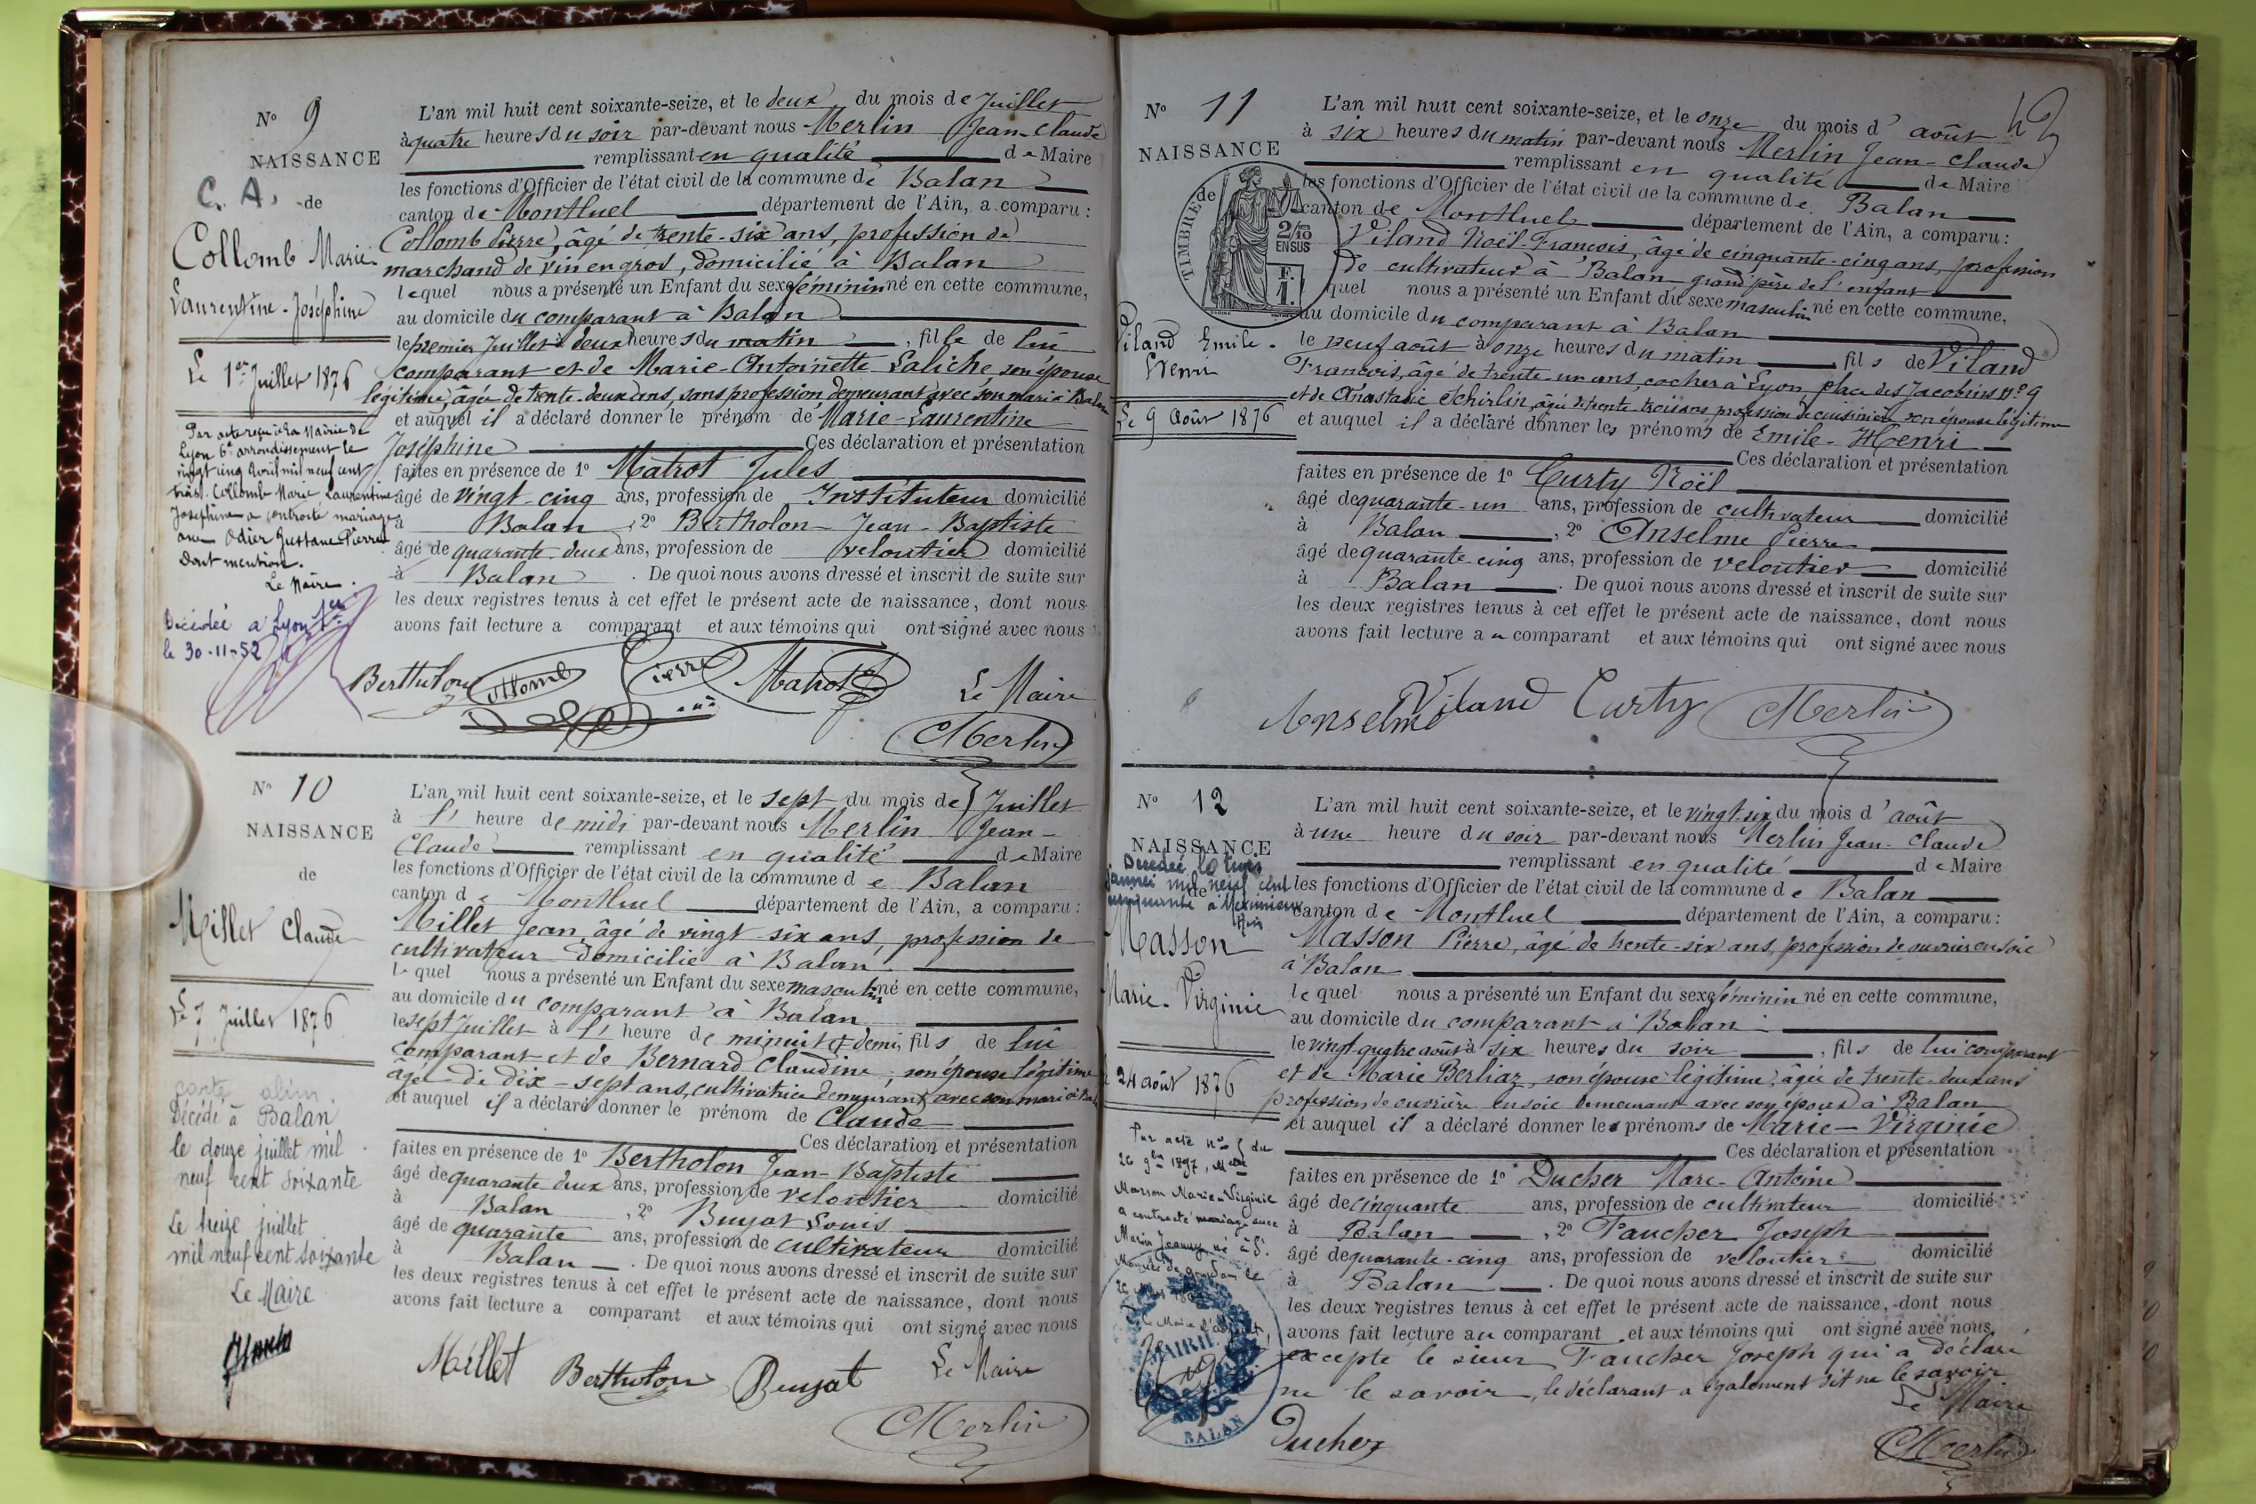 N° 9
NAISSANCE
C. A. de
Collomb Marie
Laurentine-Joséphine
Le 1er Juillet 1876
Par acte reçu à la Mairie de
Lyon 6e arrondissement le
vingt cinq Avril mil neuf cent
trois. Collomb Marie Laurentine
Joséphine a contracté mariage
avec Odier Gustave Pierre
Dont mention.
Le Maire.
Décédée à Lyon 1er
le 30-11-52
L'an mil huit cent soixante-seize, et le deux du mois de Juillet
à quatre heures du soir par-devant nous Merlin Jean-Claude
remplissant en qualité de Maire
les fonctions d'Officier de l'état civil de la commune de Balan
canton de Montluel département de l'Ain, a comparu :
Collomb Pierre, âgé de trente-six ans, profession de
marchand de vin en gros, domicilié à Balan
lequel nous a présenté un Enfant du sexe féminin né en cette commune,
au domicile du comparant à Balan
le premier Juillet à deux heures du matin, fille de lui
comparant et de Marie-Antoinette Laliche son épouse
légitime, âgée de trente-deux ans, sans profession demeurant avec son mari à Balan
et auquel il a déclaré donner le prénom de Marie-Laurentine
Joséphine Ces déclaration et présentation
faites en présence de 1° Matrot Jules
âgé de vingt-cinq ans, profession de Instituteur domicilié
à Balan, 2° Bertholon Jean-Baptiste
âgé de quarante deux ans, profession de veloutier domicilié
à Balan. De quoi nous avons dressé et inscrit de suite sur
les deux registres tenus à cet effet le présent acte de naissance, dont nous
avons fait lecture a comparant et aux témoins qui ont signé avec nous
Bertholon Collomb Pierre Matrot Le Maire
Merlin
N° 10
NAISSANCE
de
Millet Claude
Le 7 Juillet 1876
Décédé à Balan
le douze juillet mil
neuf cent soixante
Le treize juillet
mil neuf cent soixante
Le Maire
L'an mil huit cent soixante-seize, et le sept du mois de Juillet
à l' heure de midi par-devant nous Merlin Jean-
Claude remplissant en qualité de Maire
les fonctions d'Officier de l'état civil de la commune de Balan
canton de Montluel département de l'Ain, a comparu :
Millet Jean, âgé de vingt-six ans, profession de
cultivateur domicilié à Balan.
lequel nous a présenté un Enfant du sexe masculin né en cette commune,
au domicile du comparant à Balan
le sept Juillet à l' heure de minuit et demi, fils de lui
comparant et de Bernard Claudine, son épouse légitime
âgée de dix-sept ans, cultivatrice demeurant avec son mari à Balan
et auquel il a déclaré donner le prénom de Claude
Ces déclaration et présentation
faites en présence de 1° Bertholon Jean-Baptiste
âgé de quarante deux ans, profession de veloutier domicilié
à Balan, 2° Buyat Louis
âgé de quarante ans, profession de cultivateur domicilié
à Balan. De quoi nous avons dressé et inscrit de suite sur
les deux registres tenus à cet effet le présent acte de naissance, dont nous
avons fait lecture a comparant et aux témoins qui ont signé avec nous
Millet Bertholon Buyat Le Maire
Merlin
N° 11
NAISSANCE
TIMBRE de
2/10 EN SUS
F. 1.
Viland Emile-
Henri
Le 9 Août 1876
L'an mil huit cent soixante-seize, et le onze du mois d'août
à six heures du matin par-devant nous Merlin Jean-Claude
remplissant en qualité de Maire
les fonctions d'Officier de l'état civil de la commune de Balan
canton de Montluel département de l'Ain, a comparu :
Viland Noël-François, âgé de cinquante-cinq ans, profession
de cultivateur à Balan grand père de l'enfant
quel nous a présenté un Enfant du sexe masculin né en cette commune,
au domicile du comparant à Balan
le neuf août à onze heures du matin, fils de Viland
François, âgé de trente-un ans, cocher à Lyon place des Jacobins N° 9
et de Anastasie Schirlin, âgée de trente-trois ans profession de cuisinière son épouse légitime
et auquel il a déclaré donner les prénoms de Emile-Henri
Ces déclaration et présentation
faites en présence de 1° Curty Noël
âgé de quarante-un ans, profession de cultivateur domicilié
à Balan, 2° Anselme Pierre
âgé de quarante cinq ans, profession de veloutier domicilié
à Balan. De quoi nous avons dressé et inscrit de suite sur
les deux registres tenus à cet effet le présent acte de naissance, dont nous
avons fait lecture au comparant et aux témoins qui ont signé avec nous
Anselme Viland Curty Merlin
N° 12
NAISSANCE
Décédée le trois
janvier mil neuf cent
cinquante à Meximieux
Ain
Masson
Marie-Virginie
24 août 1876
Par acte n° 5 du
26 9bre 1897, Melle
Masson Marie-Virginie
a contracté mariage avec
MAIRIE
BALAN
L'an mil huit cent soixante-seize, et le vingt-six du mois d'août
à une heure du soir par-devant nous Merlin Jean-Claude
remplissant en qualité de Maire
les fonctions d'Officier de l'état civil de la commune de Balan
canton de Montluel département de l'Ain, a comparu :
Masson Pierre, âgé de trente-six ans, profession de ouvrier en soie
à Balan
lequel nous a présenté un Enfant du sexe féminin né en cette commune,
au domicile du comparant à Balan
le vingt-quatre août à six heures du soir, fils de lui comparant
et de Marie Berliaz, son épouse légitime, âgée de trente-deux ans
profession de ouvrière en soie demeurant avec son époux à Balan
et auquel il a déclaré donner les prénoms de Marie-Virginie
Ces déclaration et présentation
faites en présence de 1° Ducher Marc-Antoine
âgé de cinquante ans, profession de cultivateur domicilié
à Balan, 2° Faucher Joseph
âgé de quarante-cinq ans, profession de veloutier domicilié
à Balan. De quoi nous avons dressé et inscrit de suite sur
les deux registres tenus à cet effet le présent acte de naissance, dont nous
avons fait lecture au comparant et aux témoins qui ont signé avec nous,
excepté le sieur Faucher Joseph qui a déclaré
ne le savoir, le déclarant a également dit ne le savoir
Le Maire
Ducher Merlin